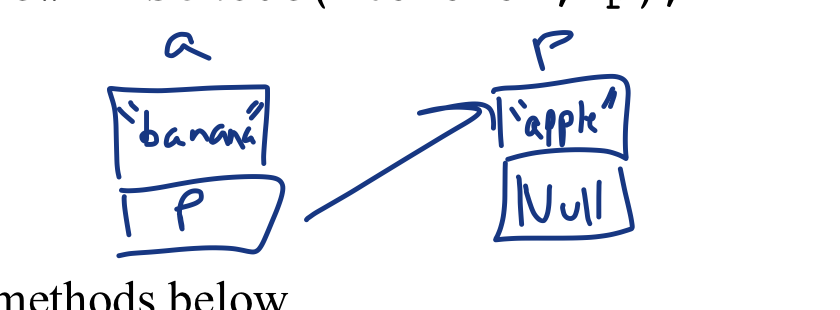 a
p
"banana"
"apple"
P
Null
methods below